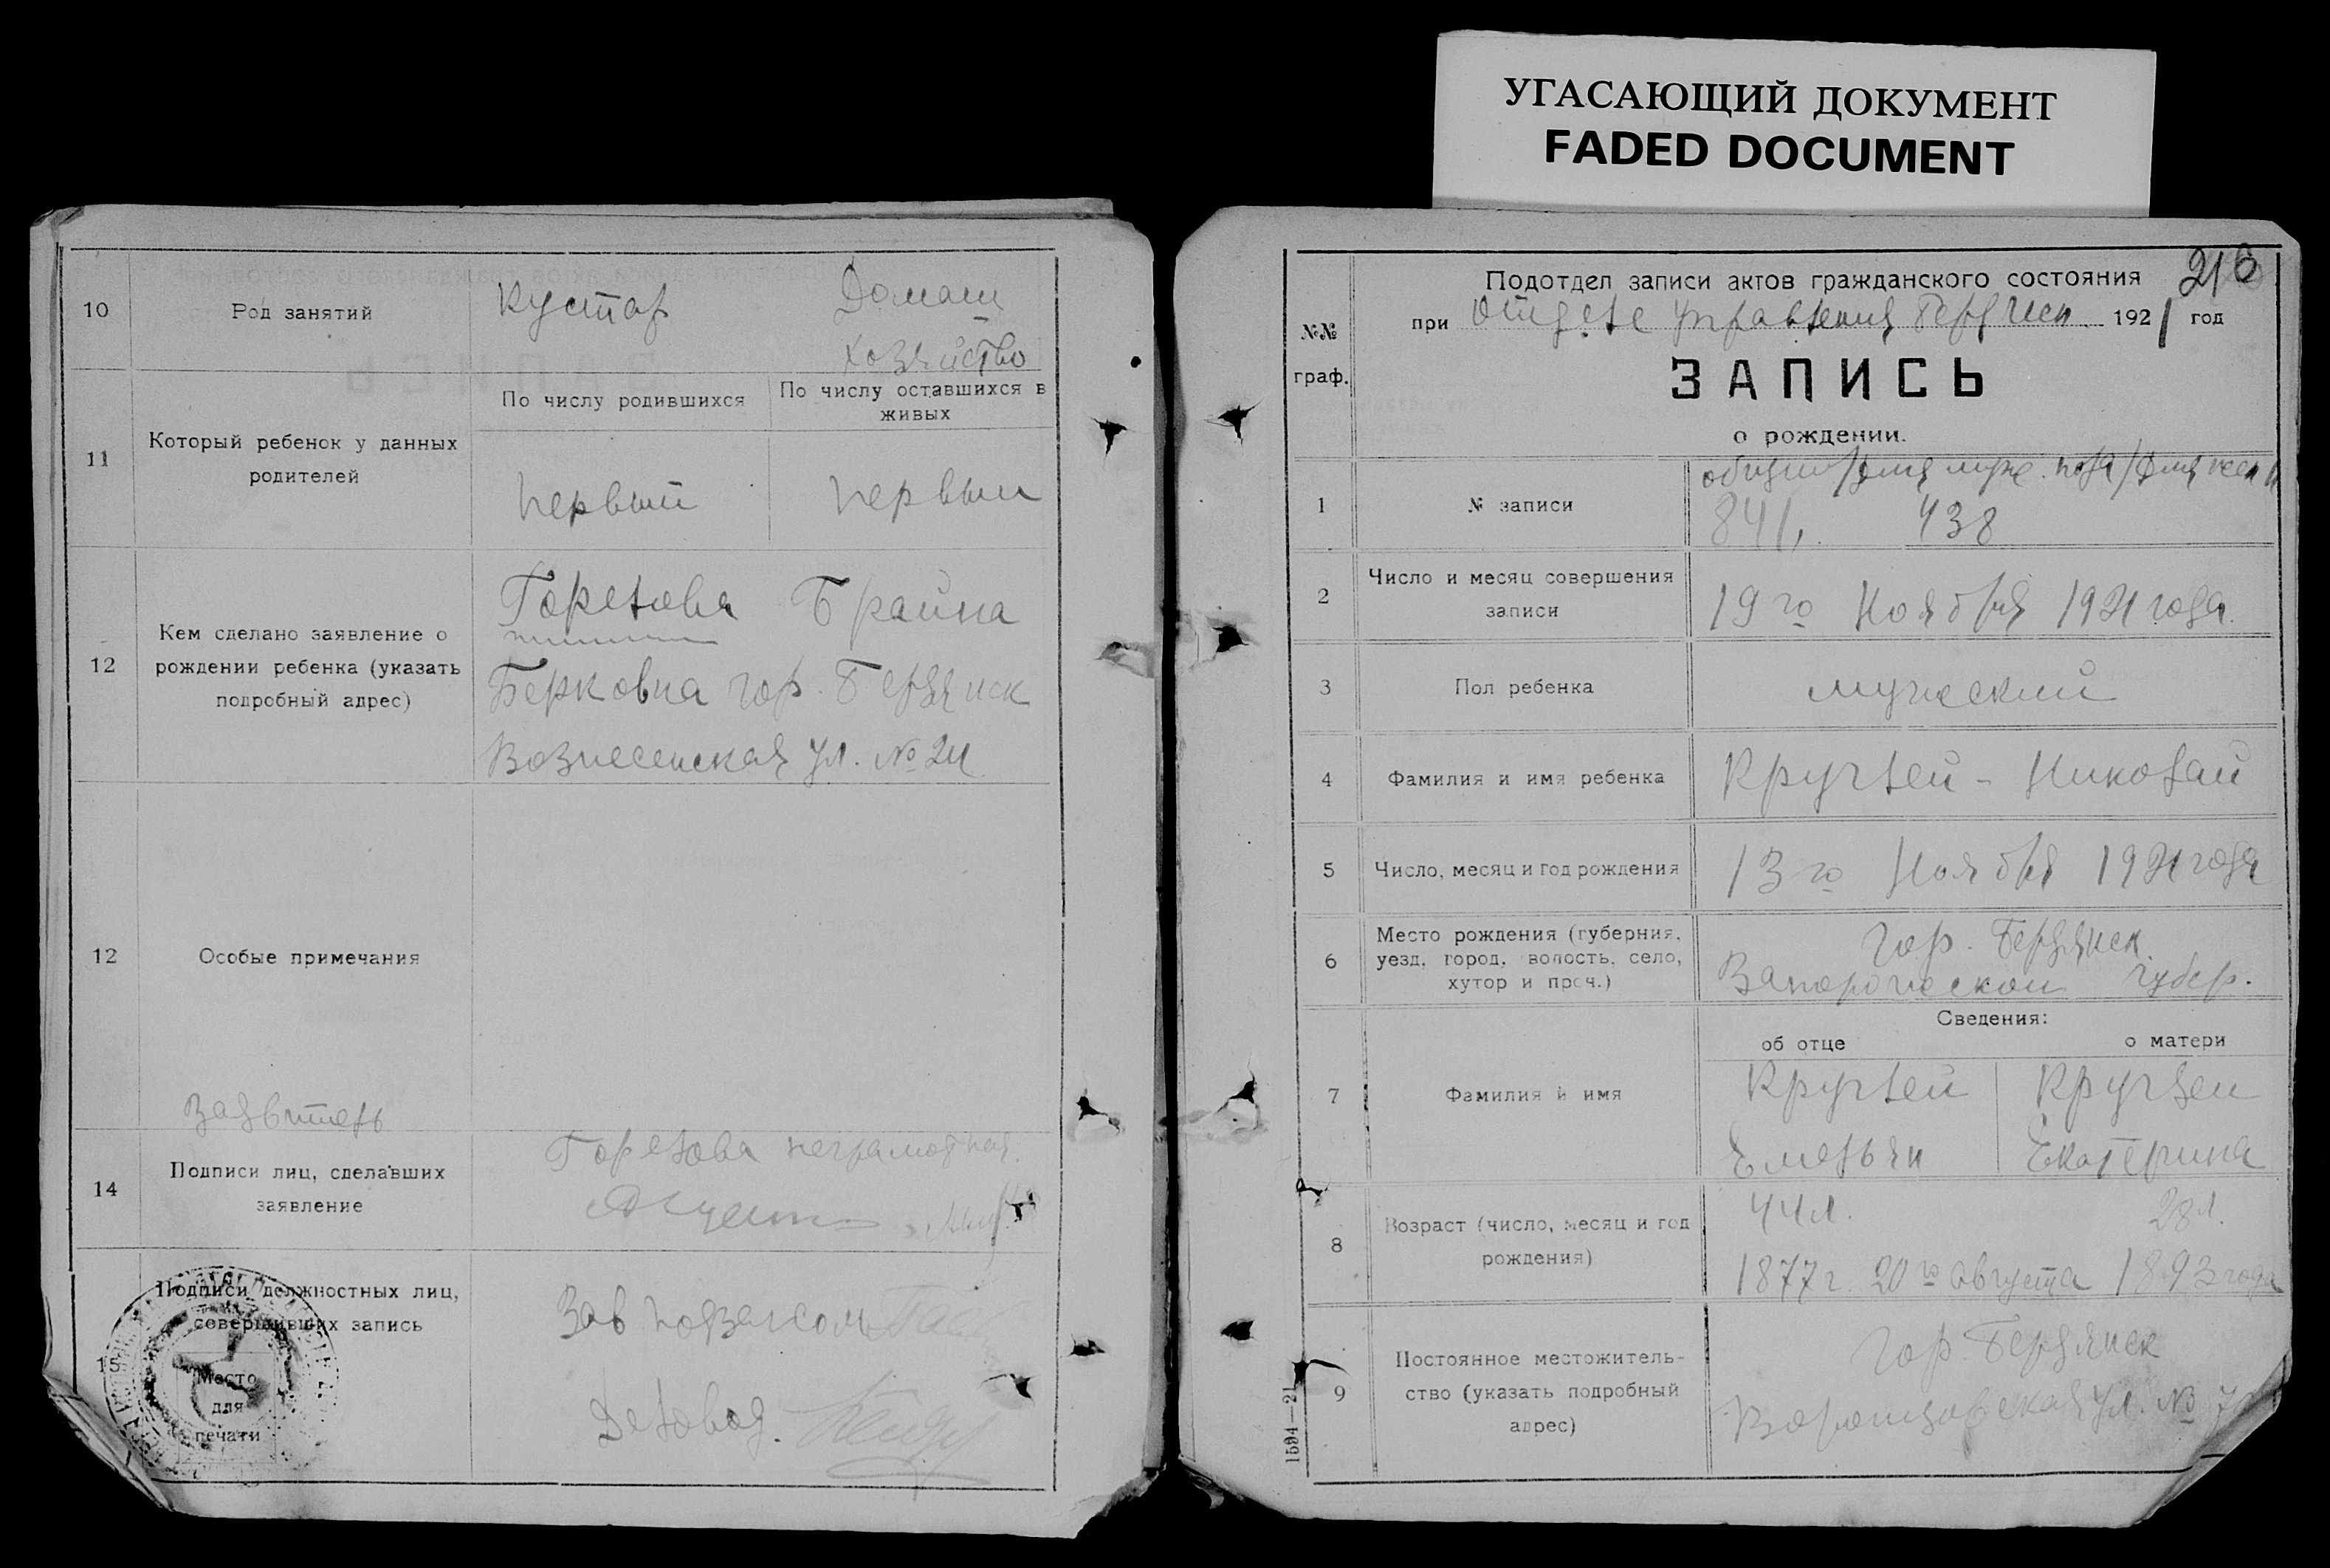 УГАСАЮЩИЙ ДОКУМЕНТ
FADED DOCUMENT
10
Род занятий
Кустар
Домаш
хозяйство
11
Который ребенок у данных
родителей
По числу родившихся
По числу оставшихся в
живых
первый
первый
12
Кем сделано заявление о
рождении ребенка (указать
подробный адрес)
Горелова Брайна
Берковна гор. Бердянск
Вознесенская ул. № 24
12
Особые примечания
Заявитель
14
Подписи лиц, сделавших
заявление
Горелова неграмотная.
15
Подписи должностных лиц,
совершивших запись
Место
для
печати
Зав
Деловод.
216
№№
граф.
Подотдел записи актов гражданского состояния
при Отделе Управления Бердянск. 1921 год
ЗАПИСЬ
о рождении.
1
№ записи
общий/для муж. пола/для жен
841, 438
2
Число и месяц совершения
записи
19го Ноября 1921 года.
3
Пол ребенка
мужеский
4
Фамилия и имя ребенка
Круглей - Николай
5
Число, месяц и год рождения
13го Ноября 1921 года
6
Место рождения (губерния,
уезд, город, волость, село,
хутор и проч.)
гор. Бердянск
Запорожской губер.
Сведения:
об отце
о матери
7
Фамилия и имя
Круглей
Емельян
Круглей
Екатерина
8
Возраст (число, месяц и год
рождения)
44 л.
28 л.
1877 г. 20го августа 1893 года
9
Постоянное местожитель-
ство (указать подробный
адрес)
гор. Бердянск
Воронцовская ул. №
1594—21